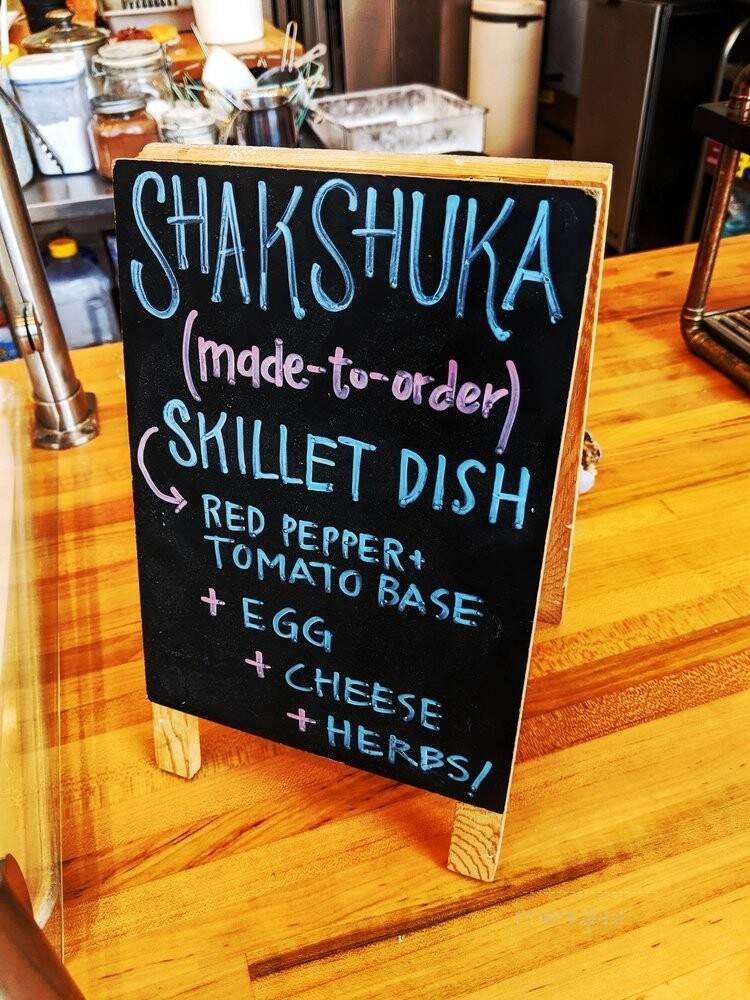 SHAKSHUKA
(made-to-order)
SKILLET DISH
RED PEPPER+
TOMATO BASE
+ EGG
+ CHEESE
+ HERBS!